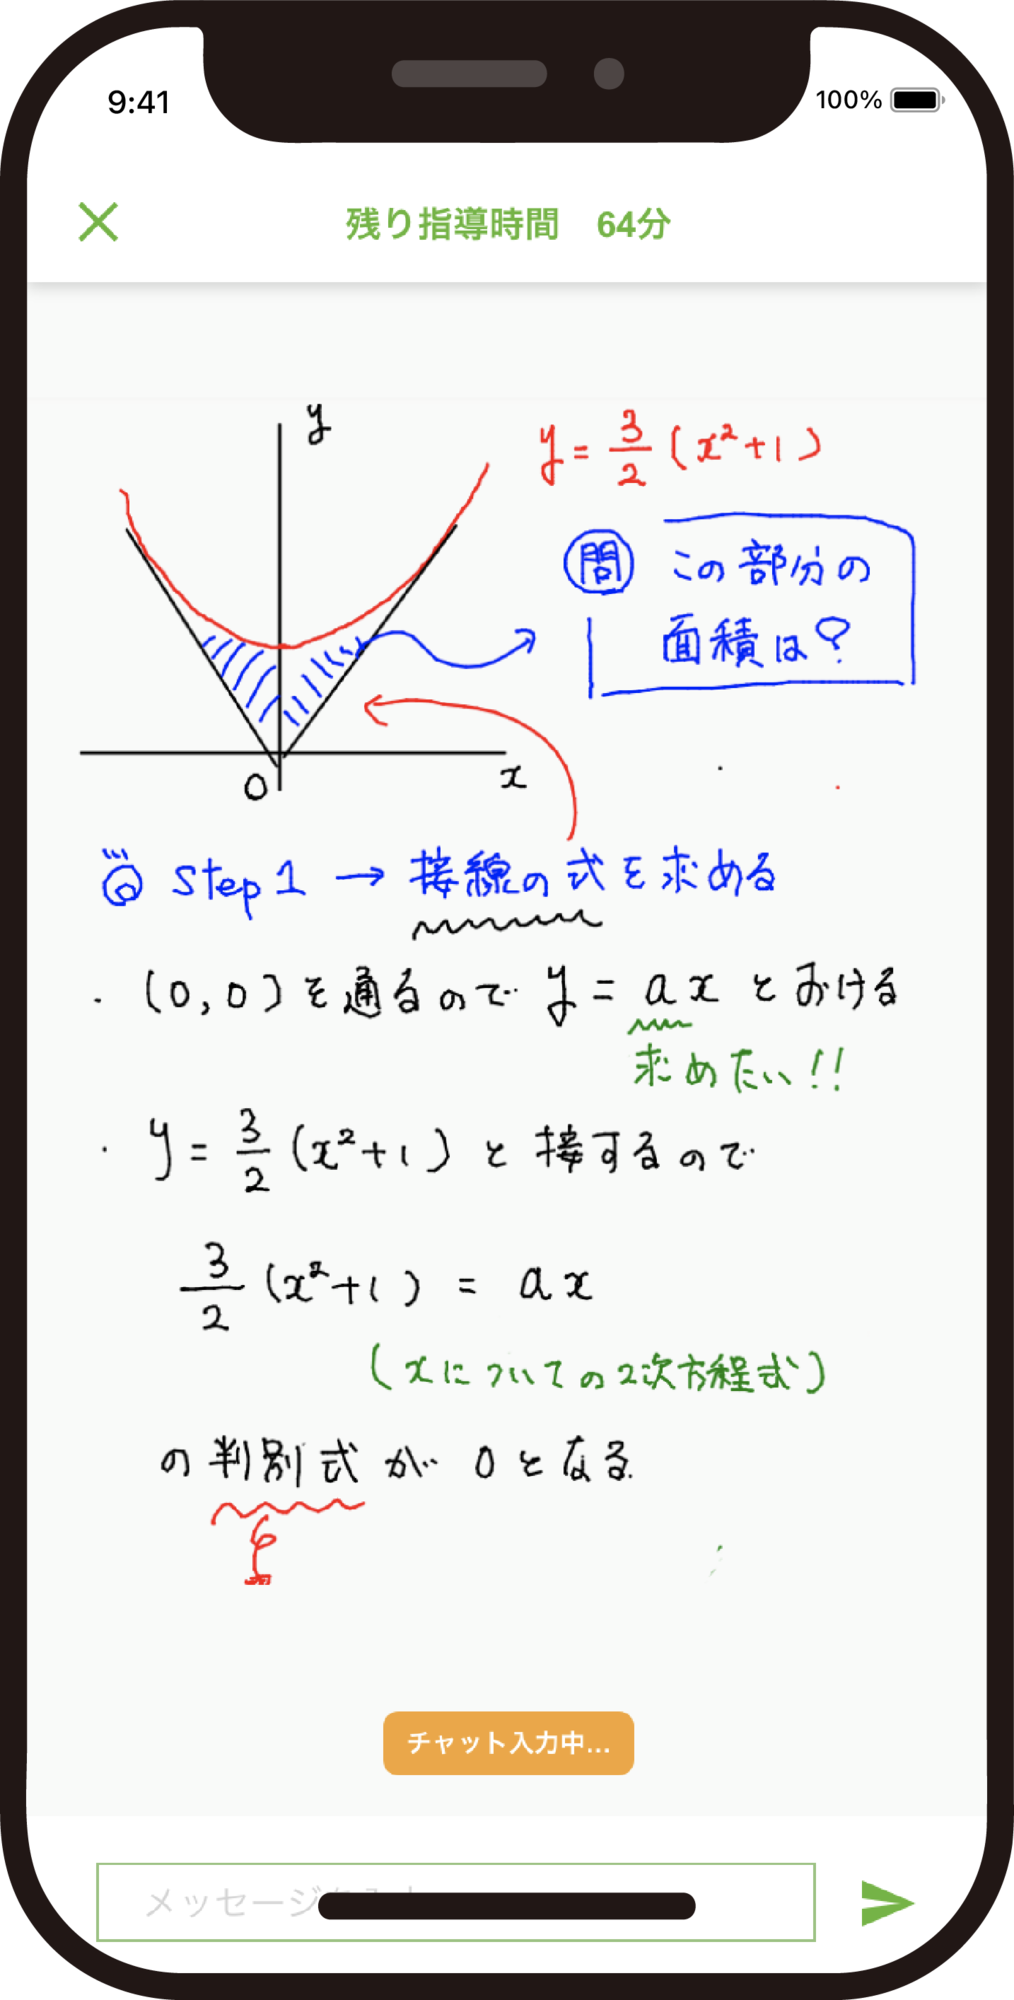 9:41
100%
残り指導時間 64分
y
y = 3/2 (x²+1)
問 この部分の
面積は?
O
x
Step 1 → 接線の式を求める
・(0,0)を通るので y = ax とおける
求めたい!!
・y = 3/2 (x²+1) と接するので
3/2 (x²+1) = ax
(xについての2次方程式)
の判別式が 0 となる
チャット入力中...
メッセージ